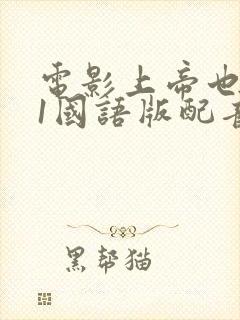 電影上帝也
1國語版配音
黑幫猫